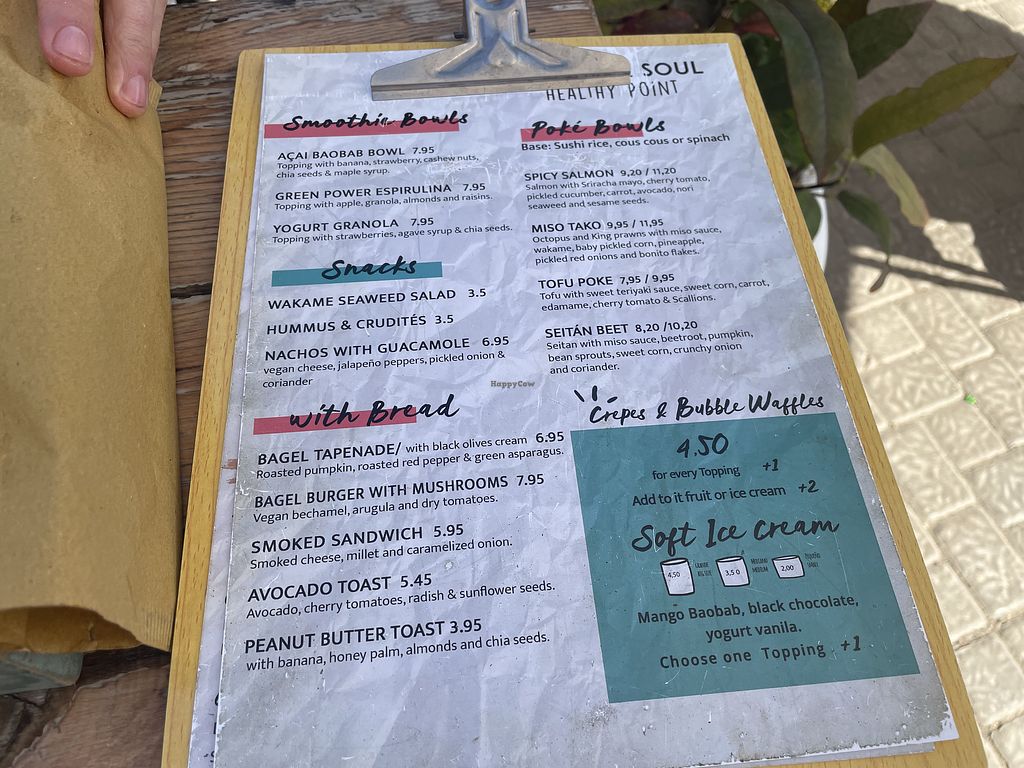 SOUL
HEALTHY POINT
Smoothie Bowls
AÇAI BAOBAB BOWL 7.95
Topping with banana, strawberry, cashew nuts,
chia seeds & maple syrup.
GREEN POWER ESPIRULINA 7.95
Topping with apple, granola, almonds and raisins.
YOGURT GRANOLA 7.95
Topping with strawberries, agave syrup & chia seeds.
Snacks
WAKAME SEAWEED SALAD 3.5
HUMMUS & CRUDITÉS 3.5
NACHOS WITH GUACAMOLE 6.95
vegan cheese, jalapeño peppers, pickled onion &
coriander
with Bread
BAGEL TAPENADE/ with black olives cream 6.95
Roasted pumpkin, roasted red pepper & green asparagus.
BAGEL BURGER WITH MUSHROOMS 7.95
Vegan bechamel, arugula and dry tomatoes.
SMOKED SANDWICH 5.95
Smoked cheese, millet and caramelized onion.
AVOCADO TOAST 5.45
Avocado, cherry tomatoes, radish & sunflower seeds.
PEANUT BUTTER TOAST 3.95
with banana, honey palm, almonds and chia seeds.
Poké Bowls
Base: Sushi rice, cous cous or spinach
SPICY SALMON 9,20 / 11,20
Salmon with Sriracha mayo, cherry tomato,
pickled cucumber, carrot, avocado, nori
seaweed and sesame seeds.
MISO TAKO 9,95 / 11,95
Octopus and King prawns with miso sauce,
wakame, baby pickled corn, pineapple,
pickled red onions and bonito flakes.
TOFU POKE 7,95 / 9,95
Tofu with sweet teriyaki sauce, sweet corn, carrot,
edamame, cherry tomato & Scallions.
SEITÁN BEET 8,20 /10,20
Seitan with miso sauce, beetroot, pumpkin,
bean sprouts, sweet corn, crunchy onion
and coriander.
HappyCow
Crepes & Bubble Waffles
4.50
for every Topping +1
Add to it fruit or ice cream +2
Soft Ice Cream
4,50 3,50 2,00
Mango Baobab, black chocolate,
yogurt vanila.
Choose one Topping +1